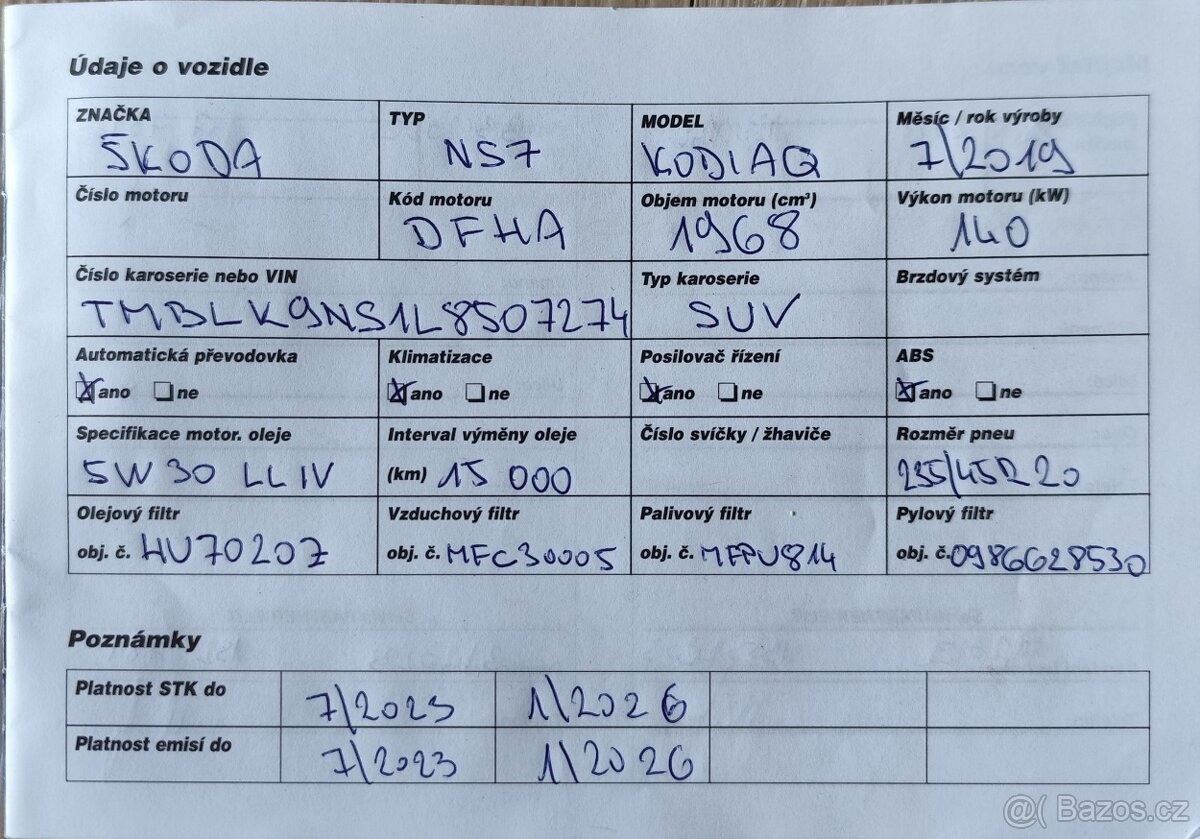 Údaje o vozidle
ZNAČKA TYP MODEL Měsíc / rok výroby
ŠKODA NS7 KODIAQ 7/2019
Číslo motoru Kód motoru Objem motoru (cm³) Výkon motoru (kW)
DFHA 1968 140
Číslo karoserie nebo VIN Typ karoserie Brzdový systém
TMBLK9NS1L8507274 SUV
Automatická převodovka Klimatizace Posilovač řízení ABS
ano ne ano ne ano ne ano ne
Specifikace motor. oleje Interval výměny oleje Číslo svíčky / žhaviče Rozměr pneu
5W30 LLIV (km) 15 000 235/45R20
Olejový filtr Vzduchový filtr Palivový filtr Pylový filtr
obj. č. HU7020z obj. č. MFC30005 obj. č. MFPU814 obj. č. 0986628530
Poznámky
Platnost STK do 7/2023 1/2026
Platnost emisí do 7/2023 1/2026
@( Bazos.cz